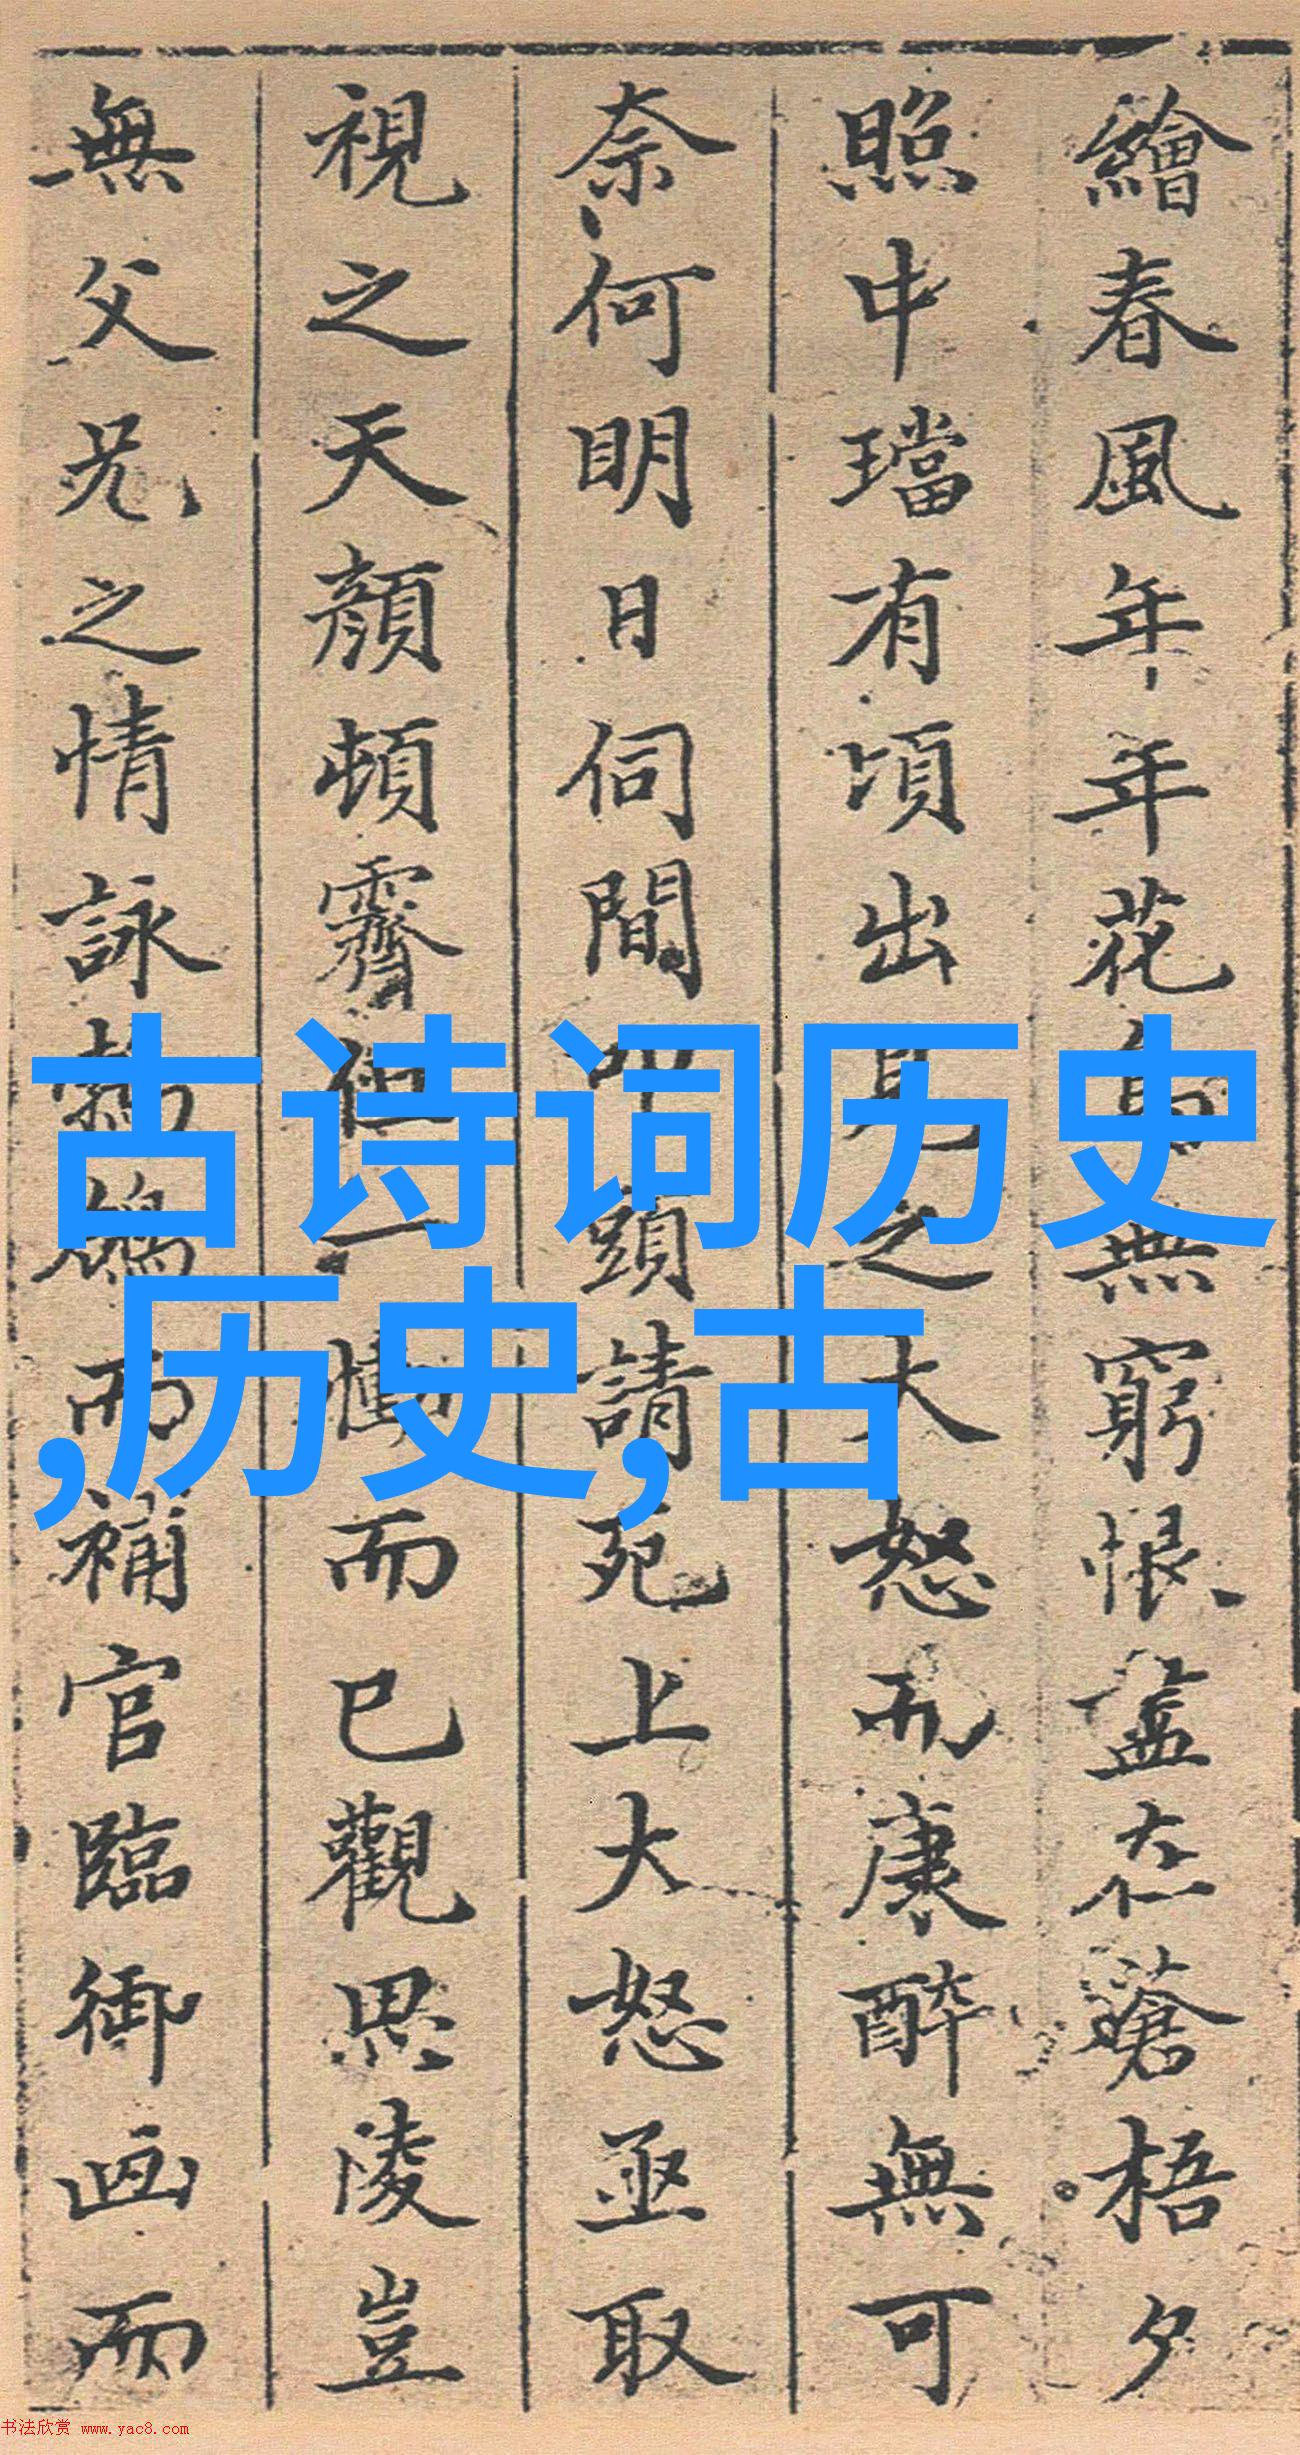 繪春風年年花鳥無窮恨盡在蒼梧夕
照中璫有頃出見之大怒而康醉無可
奈何明日伺間叩頭請死上大怒亟取
視之天顏頓霽但一慟而已觀思陵豈
無父兄之情詠鶺鴒而補官臨御画而
古诗词历史
,历史,古
书法欣赏 www.yac8.com